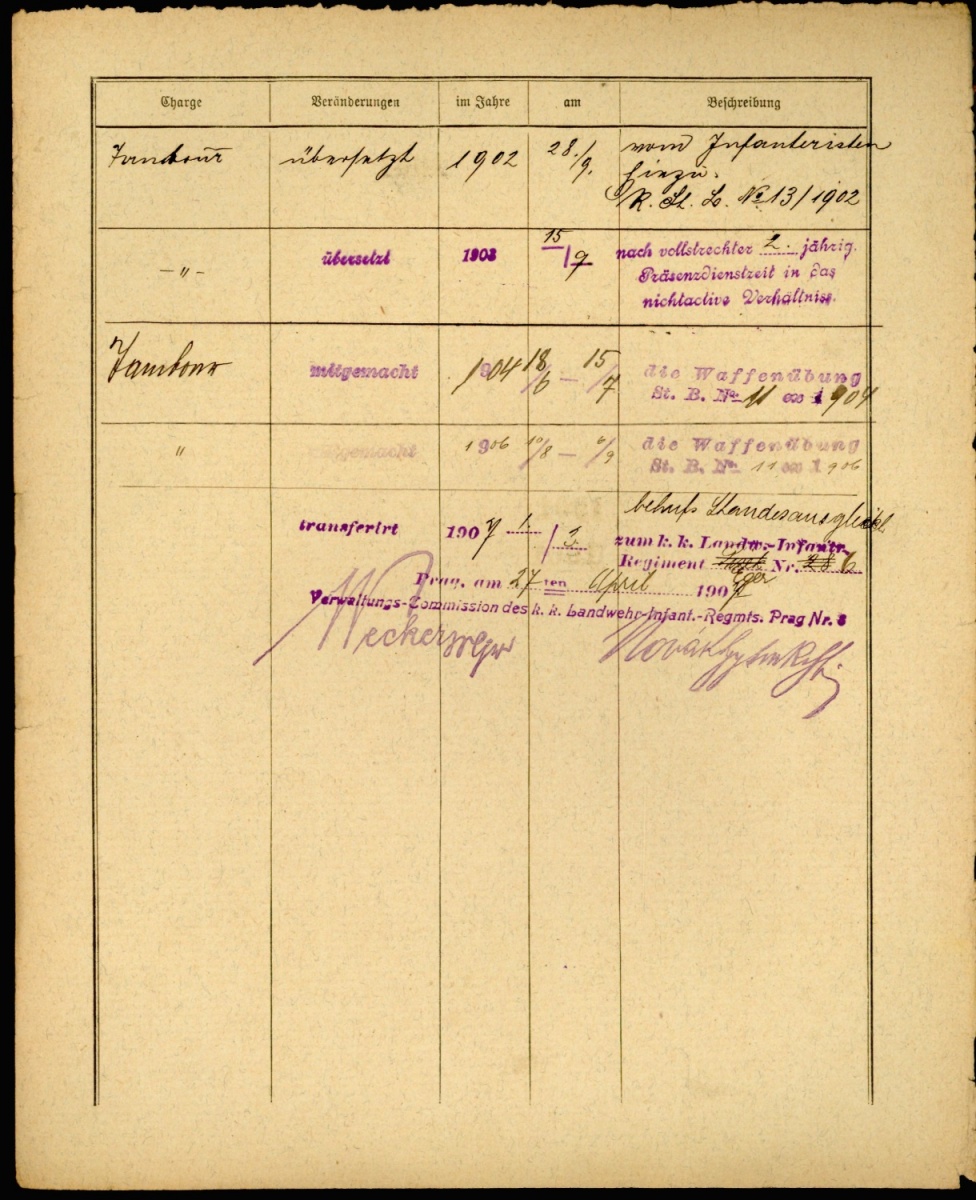 Charge Veränderungen im Jahre am Beschreibung
Tambour übersetzt 1902 28./9. vom Infanteristen
hiezu.
R. St. B. № 13/1902
-"- übersetzt 1903 15/9 nach vollstreckter 2. jährig.
Präsenzdienstzeit in das
nichtactive Verhältniss.
Tambour mitgemacht 1904 18/6 — 15/7 die Waffenübung
St. B. Nr. 11 ex 1904
" mitgemacht 1906 10/8 — 6/9 die Waffenübung
St. B. Nr. 11 ex 1906
behufs Standesausgleich
transferirt 1907 1./3. zum k. k. Landw.-Infantr.
Regiment Eger Nr. 6
Prag, am 27ten April 1907
Verwaltungs-Commission des k. k. Landwehr-Infant.-Regmts. Prag Nr. 8
Novák